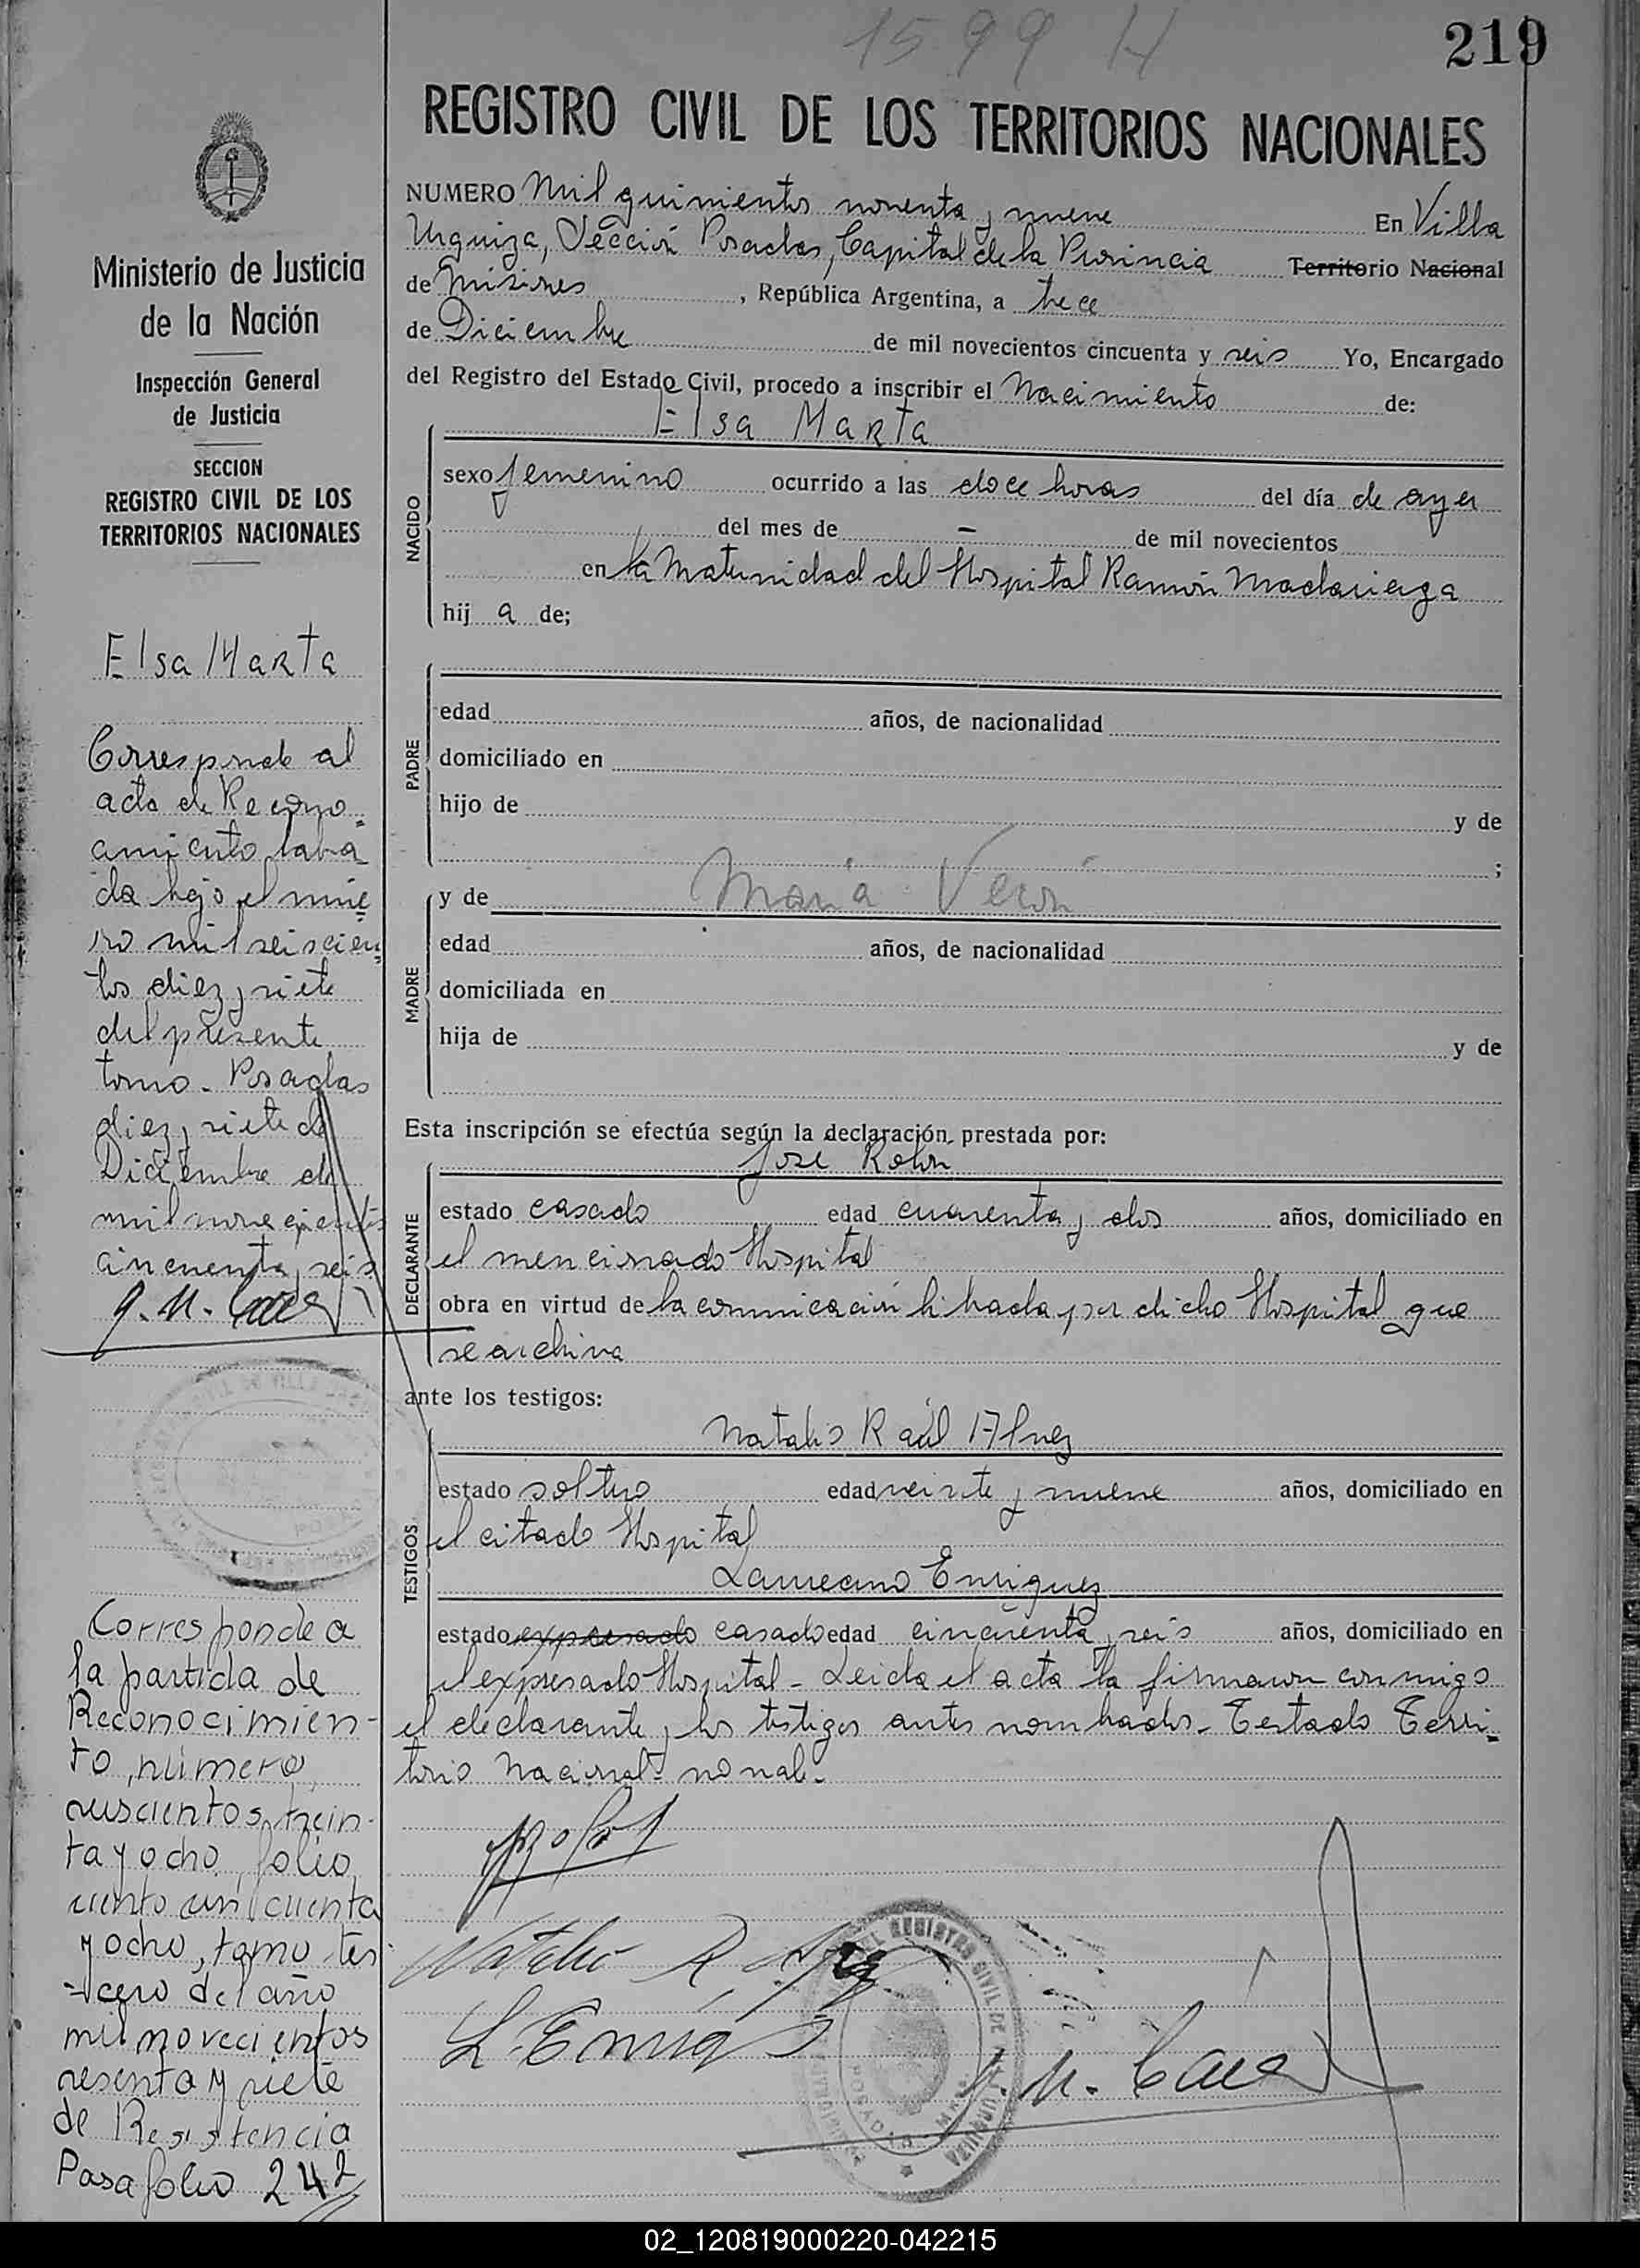 1599 H
219
REGISTRO CIVIL DE LOS TERRITORIOS NACIONALES
NUMERO Mil quinientos noventa y nueve En Villa
Urquiza, Sección Posadas, Capital de la Provincia Territorio Nacional
de Misiones, República Argentina, a trece
de Diciembre de mil novecientos cincuenta y seis Yo, Encargado
del Registro del Estado Civil, procedo a inscribir el Nacimiento de:
Elsa Marta
NACIDO
sexo femenino ocurrido a las doce horas del día de ayer
del mes de - de mil novecientos
en la Maternidad del Hospital Ramón Madariaga
hij a de;
PADRE
edad años, de nacionalidad
domiciliado en
hijo de y de
;
MADRE
y de Maria Verón
edad años, de nacionalidad
domiciliada en
hija de y de
Esta inscripción se efectúa según la declaración prestada por:
José Rolón
DECLARANTE
estado casado edad cuarenta y dos años, domiciliado en
el mencionado Hospital
obra en virtud de la comunicación librada por dicho Hospital que
se archiva
ante los testigos:
Natalio Raúl
TESTIGOS
estado soltero edad veinte y nueve años, domiciliado en
el citado Hospital
Laureano Enriquez
estado expresado casado edad cincuenta y seis años, domiciliado en
el expresado Hospital - Leida el acta la firmaron conmigo
el declarante y los testigos antes nombrados - Testado Terri-
torio Nacional - no vale.
L. Enriq
Ministerio de Justicia
de la Nación
Inspección General
de Justicia
SECCION
REGISTRO CIVIL DE LOS
TERRITORIOS NACIONALES
Elsa Marta
Corresponde al
acta de Recono-
cimiento labra-
da bajo el núme-
ro mil seiscien-
tos diez y siete
del presente
tomo - Posadas
diez y siete de
Diciembre de
mil novecientos
cincuenta y seis
Corresponde a
la partida de
Reconocimien-
to, número
seiscientos trein-
ta y ocho, folio
ciento cincuenta
y ocho, tomo ter-
cero del año
mil novecientos
sesenta y siete
de Resistencia
Pasa folio 242
02_120819000220-042215